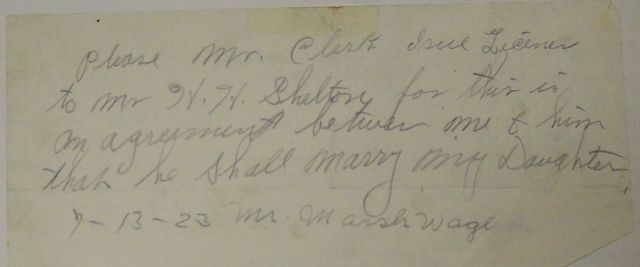 Please Mr. Clerk Isue Licener
to Mr H. H. Shelton, for this is
an agreement between me & him
that he shall marry my Daughter,
7-13-23 Mr. Marsh Wage